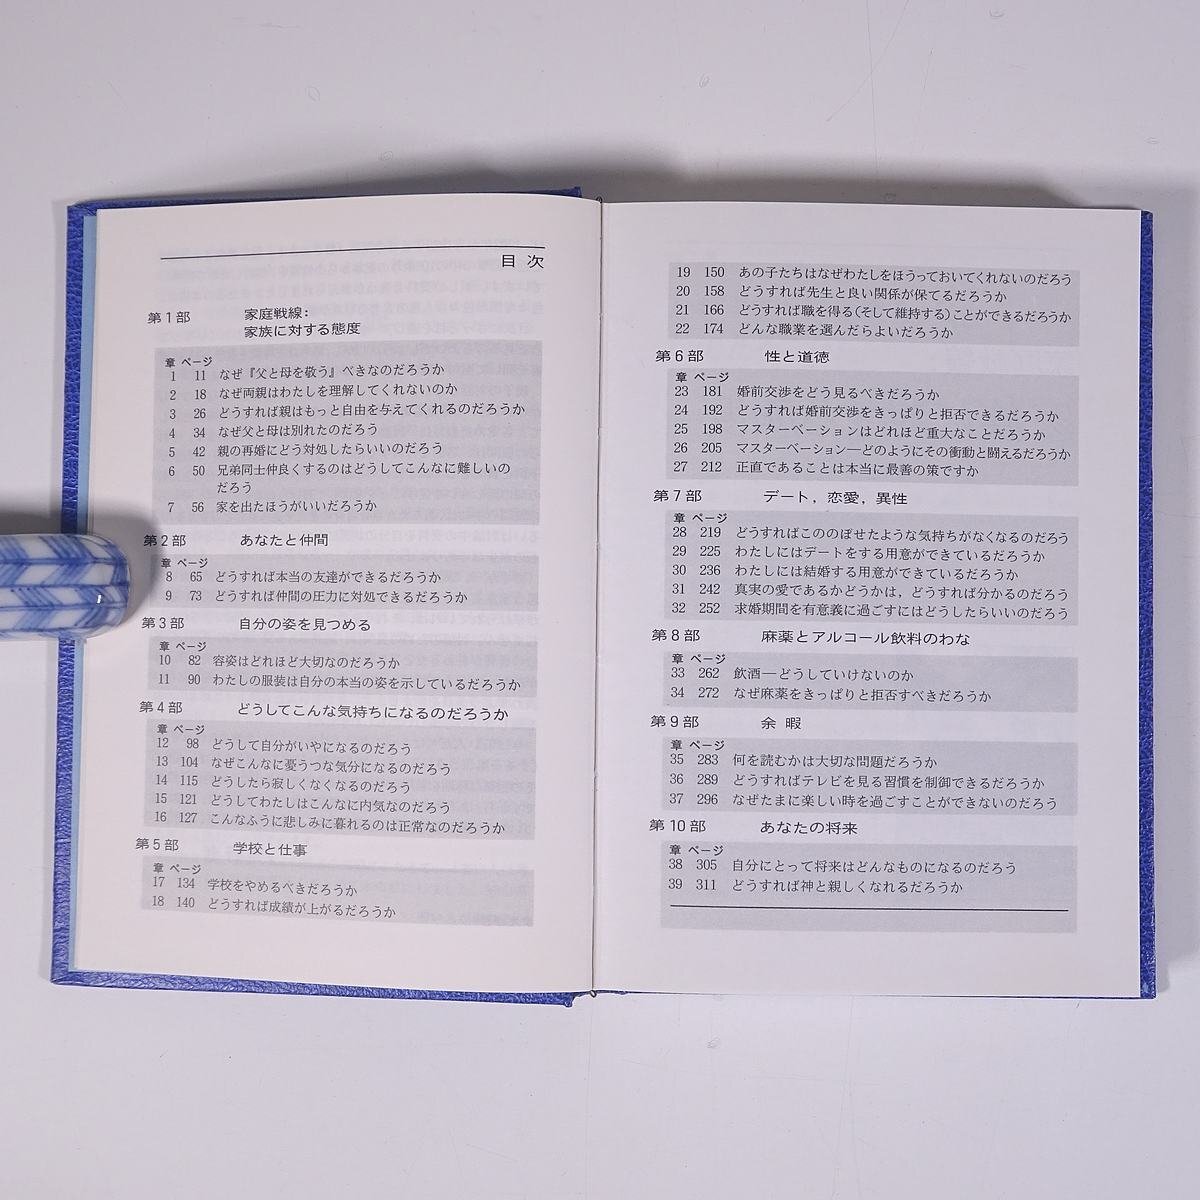 目 次
第1部 家庭戦線:
家族に対する態度
章 ページ
1 11 なぜ『父と母を敬う』べきなのだろうか
2 18 なぜ両親はわたしを理解してくれないのか
3 26 どうすれば親はもっと自由を与えてくれるのだろうか
4 34 なぜ父と母は別れたのだろう
5 42 親の再婚にどう対処したらいいのだろう
6 50 兄弟同士仲良くするのはどうしてこんなに難しいの
だろう
7 56 家を出たほうがいいだろうか
第2部 あなたと仲間
章 ページ
8 65 どうすれば本当の友達ができるだろうか
9 73 どうすれば仲間の圧力に対処できるだろうか
第3部 自分の姿を見つめる
章 ページ
10 82 容姿はどれほど大切なのだろうか
11 90 わたしの服装は自分の本当の姿を示しているだろうか
第4部 どうしてこんな気持ちになるのだろうか
章 ページ
12 98 どうして自分がいやになるのだろう
13 104 なぜこんなに憂うつな気分になるのだろう
14 115 どうしたら寂しくなくなるのだろう
15 121 どうしてわたしはこんなに内気なのだろう
16 127 こんなふうに悲しみに暮れるのは正常なのだろうか
第5部 学校と仕事
章 ページ
17 134 学校をやめるべきだろうか
18 140 どうすれば成績が上がるだろうか
19 150 あの子たちはなぜわたしをほうっておいてくれないのだろう
20 158 どうすれば先生と良い関係が保てるだろうか
21 166 どうすれば職を得る(そして維持する)ことができるだろうか
22 174 どんな職業を選んだらよいだろうか
第6部 性と道徳
章 ページ
23 181 婚前交渉をどう見るべきだろうか
24 192 どうすれば婚前交渉をきっぱりと拒否できるだろうか
25 198 マスターベーションはどれほど重大なことだろうか
26 205 マスターベーション―どのようにその衝動と闘えるだろうか
27 212 正直であることは本当に最善の策ですか
第7部 デート，恋愛，異性
章 ページ
28 219 どうすればこののぼせたような気持ちがなくなるのだろう
29 225 わたしにはデートをする用意ができているだろうか
30 236 わたしには結婚する用意ができているだろうか
31 242 真実の愛であるかどうかは，どうすれば分かるのだろう
32 252 求婚期間を有意義に過ごすにはどうしたらいいのだろう
第8部 麻薬とアルコール飲料のわな
章 ページ
33 262 飲酒―どうしていけないのか
34 272 なぜ麻薬をきっぱりと拒否すべきだろうか
第9部 余 暇
章 ページ
35 283 何を読むかは大切な問題だろうか
36 289 どうすればテレビを見る習慣を制御できるだろうか
37 296 なぜたまに楽しい時を過ごすことができないのだろう
第10部 あなたの将来
章 ページ
38 305 自分にとって将来はどんなものになるのだろう
39 311 どうすれば神と親しくなれるだろうか